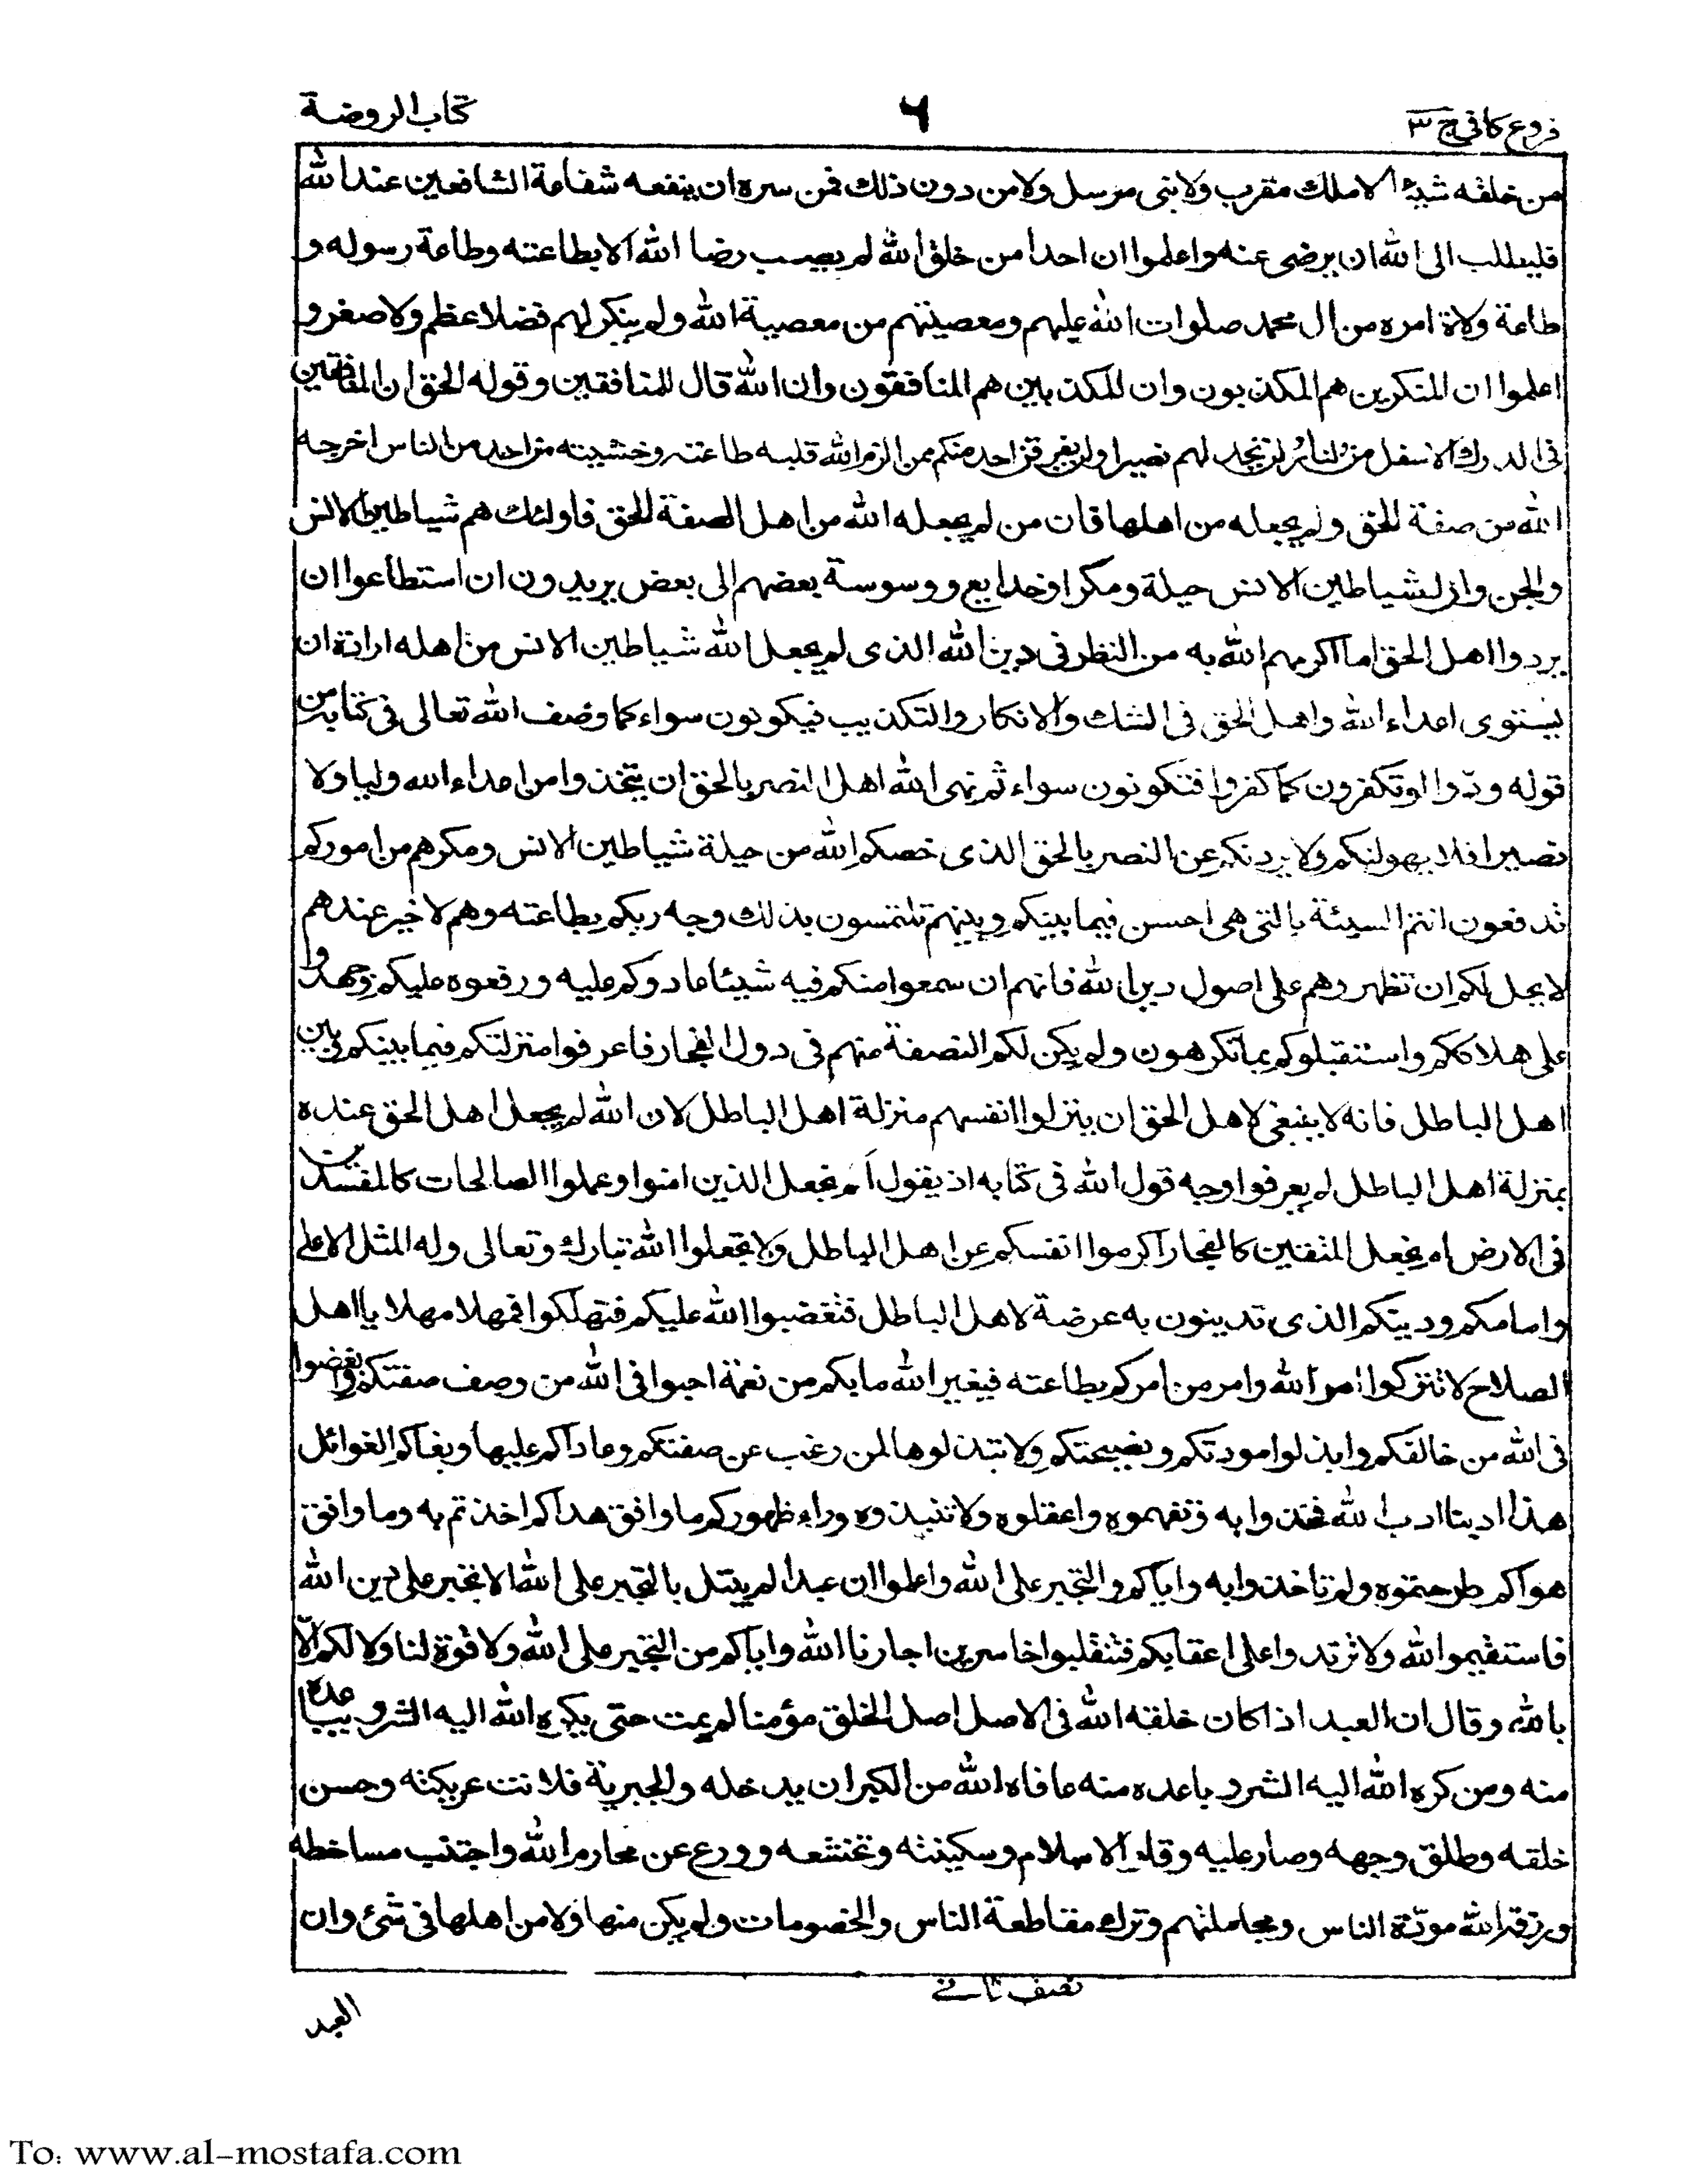 فروع كافى ج ٣
٦
كتاب الروضة
من خلقه شيئا لا ملك مقرب ولا نبى مرسل ولا من دون ذلك فمن سره ان ينفعه شفاعة الشافعين عند الله
فليطلب الى الله ان يرضى عنه واعلموا ان احدا من خلق الله لم يصب رضا الله الا بطاعته وطاعة رسوله و
طاعة ولاة امره من ال محمد صلوات الله عليهم ومعصيتهم من معصية الله ولم ينكر لهم فضلا عظم ولا صغر و
اعلموا ان المنكرين هم المكذبون وان المكذبين هم المنافقون وان الله قال للمنافقين وقوله الحق ان المنافقين
فى الدرك الاسفل من النار ولن تجد لهم نصيرا ولا يفرقن احد منكم ممن الزم الله قلبه طاعته وخشيته من احد من الناس اخرجه
الله من صفة الحق ولم يجعله من اهلها فان من لم يجعله الله من اهل الصفة الحق فاولئك هم شياطين الانس
والجن وان لشياطين الانس حيلة ومكرا وخدايع ووسوسة بعضهم الى بعض يريدون ان استطاعوا ان
يردوا اهل الحق اما اكرمهم الله به من النظر فى دين الله الذى لم يجعل الله شياطين الانس من اهله ارادة ان
يستوى اعداء الله واهل الحق فى الشك والانكار والتكذيب فيكونون سواء كما وصف الله تعالى فى كتابه من
قوله ودّوا لو تكفرون كما كفروا فتكونون سواء ثم نهى الله اهل النصر بالحق ان يتخذوا من اعداء الله وليا ولا
نصيرا فلا يهولنكم ولا يردنكم عن النصر بالحق الذى خصكم الله من حيلة شياطين الانس ومكرهم من اموركم
تدفعون انتم السيئة بالتى هى احسن فيما بينكم وبينهم تلتمسون بذلك وجه ربكم بطاعته وهم لا خير عندهم
لا يحل لكم ان تظهروهم على اصول دين الله فانهم ان سمعوا منكم فيه شيئا عادوكم عليه ورفعوه عليكم وجهدوا
على هلاككم واستقبلوكم بما تكرهون ولم يكن لكم النصفة منهم فى دول الفجار فاعرفوا منزلتكم فيما بينكم وبين
اهل الباطل فانه لا ينبغى لاهل الحق ان ينزلوا انفسهم منزلة اهل الباطل لان الله لم يجعل اهل الحق عنده
بمنزلة اهل الباطل لم يعرفوا وجه قول الله فى كتابه اذ يقول ام نجعل الذين امنوا وعملوا الصالحات كالمفسدين
فى الارض ام نجعل المتقين كالفجار اكرموا انفسكم عن اهل الباطل ولا تجعلوا الله تبارك وتعالى وله المثل الاعلى
وامامكم ودينكم الذى تدينون به عرضة لاهل الباطل فتغضبوا الله عليكم فتهلكوا فمهلا مهلا يا اهل
الصلاح لا تتركوا امر الله وامر من امركم بطاعته فيغير الله ما بكم من نعمة احبوا فى الله من وصف صفتكم وابغضوا
فى الله من خالفكم وابذلوا مودتكم ونصيحتكم ولا تبتذلوها لمن رغب عن صفتكم وعاداكم عليها وبغاكم الغوائل
هذا ادبنا ادب الله فخذوا به وتفهموه واعقلوه ولا تنبذوه وراء ظهوركم ما وافق هداكم اخذتم به وما وافق
هواكم طرحتموه ولم تاخذوا به واياكم والتجبر على الله واعلموا ان عبدا لم يبتل بالتجبر على الله الا تجبر على دين الله
فاستقيموا لله ولا ترتدوا على اعقابكم فتنقلبوا خاسرين اجارنا الله واياكم من التجبر على الله ولا قوة لنا ولا لكم الّا
بالله وقال ان العبد اذا كان خلقه الله فى الاصل اصل الخلق مؤمنا لم يمت حتى يكره الله اليه الشر ويباعده
منه ومن كره الله اليه الشر وباعده منه عافاه الله من الكبر ان يدخله والجبرية فلانت عريكته وحسن
خلقه وطلق وجهه وصار عليه وقار الاسلام وسكينته وتخشعه وورع عن محارم الله واجتنب مساخطه
ورزقه الله مودّة الناس ومجاملتهم وترك مقاطعة الناس والخصومات ولم يكن منها ولا من اهلها فى شئ وان
نصف ثانى
العبد
To: www.al-mostafa.com